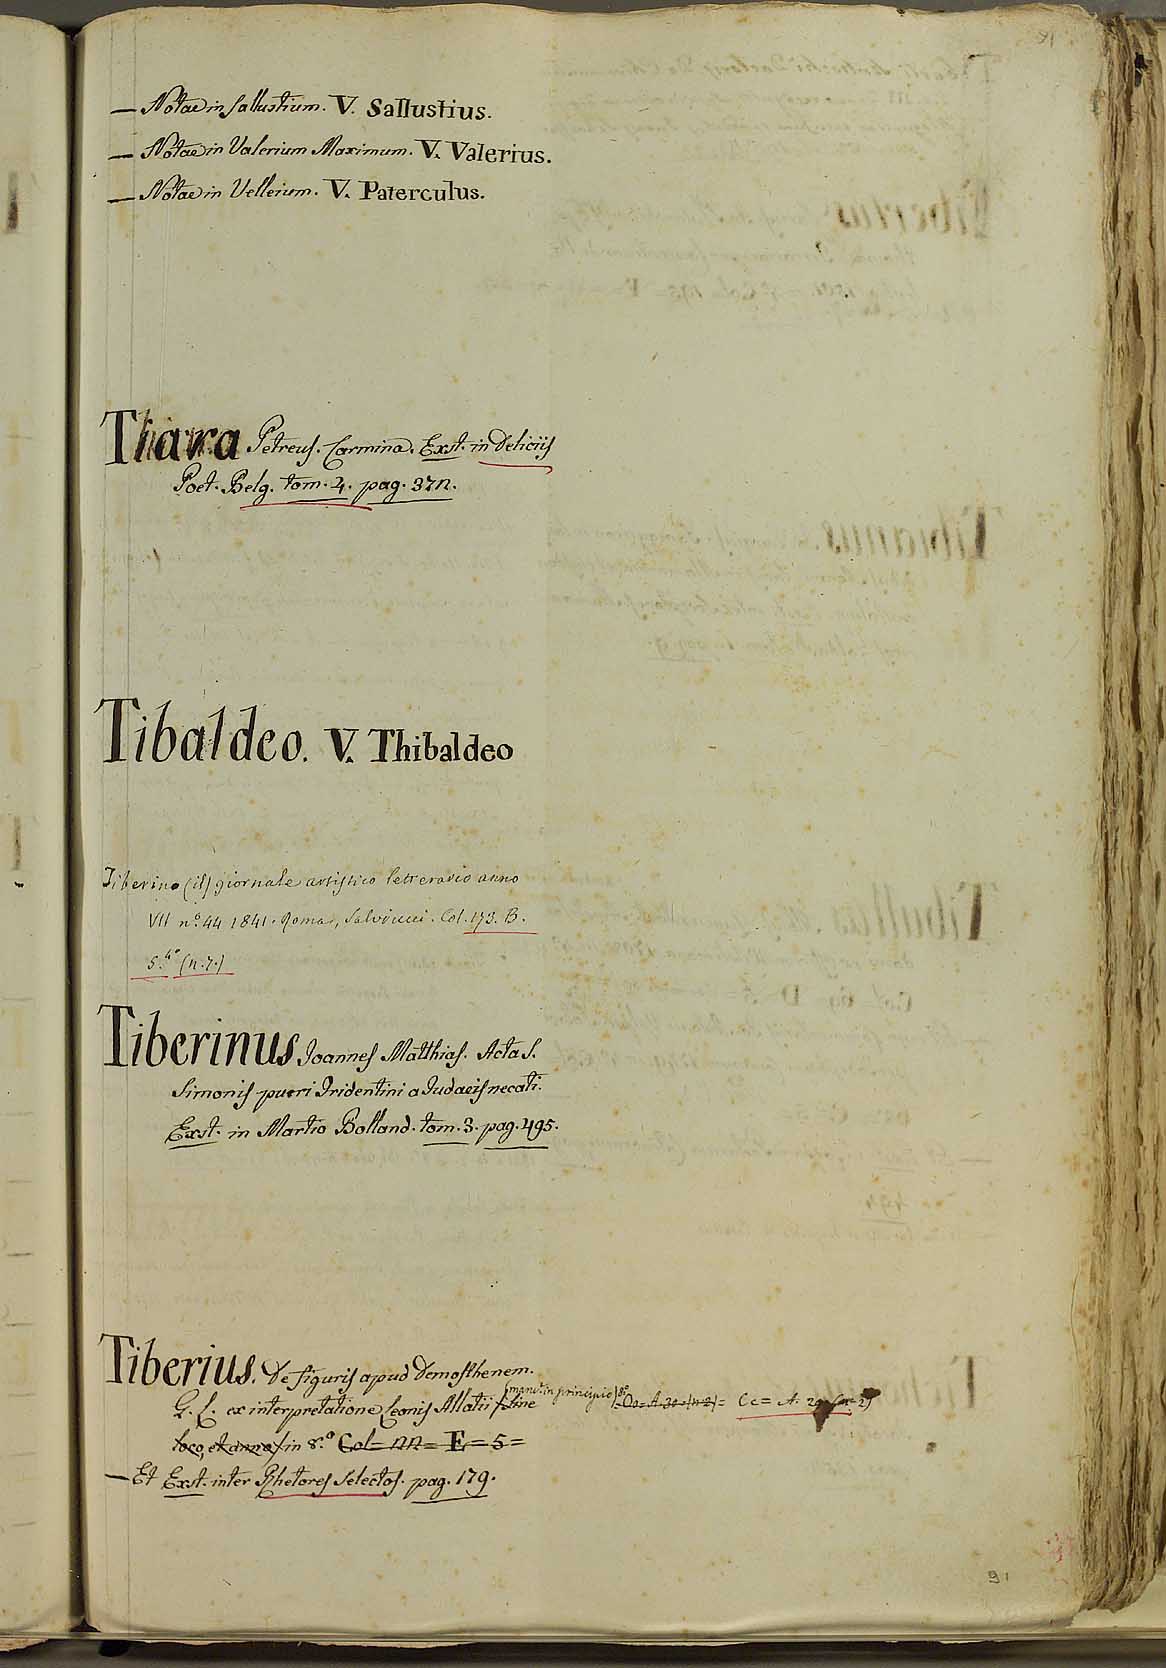 91
— Notae in Sallustium. V. Sallustius.
— Notae in Valerium Maximum. V. Valerius.
— Notae in Velleium. V. Paterculus.
Tiara Petreus. Carmina. Exst. in Deliciis
Poet. Belg. tom. 4. pag. 372.
Tibaldeo. V. Thibaldeo
Tiberino (il) giornale artistico letterario anno
VII n.º 44 1841. Roma, Salviucci. Col. 173. B.
5.to (n. 7.)
Tiberinus Joannes Matthias. Acta S.
Simonis pueri Tridentini a Judaeis necati.
Exst. in Martio Bolland. tom. 3. pag. 495.
Tiberius. De figuris apud Demosthenem.
G. L. ex interpretatione Leonis Allatii sine (manct. in principio) 8º = Oo = A. 30 = (n. 2) = Cc = A. 29
loco, et anno in 8.º Col = nn = E = 5 =
— Et Exst. inter Rhetores Selectos. pag. 179.
91